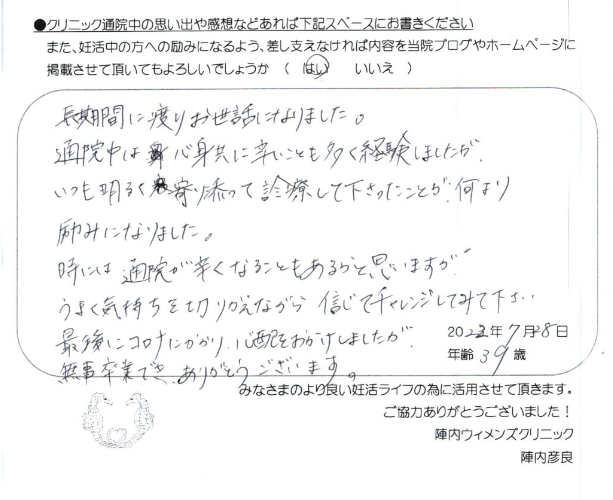 ●クリニック通院中の思い出や感想などあれば下記スペースにお書きください
また、妊活中の方への励みになるよう、差し支えなければ内容を当院ブログやホームページに
掲載させて頂いてもよろしいでしょうか （ はい　　いいえ ）
長期間に渡りお世話になりました。
通院中は心身共に辛いことも多く経験しましたが、
いつも明るく寄り添って診療して下さったことが何より
励みになりました。
時には通院が辛くなることもあるかと思いますが
うまく気持ちを切りかえながら信じてチャレンジしてみて下さい
最後にコロナにかかり、心配をおかけしましたが
無事卒業でき、ありがとうございます。
年7月28日
年齢 39 歳
みなさまのより良い妊活ライフの為に活用させて頂きます。
ご協力ありがとうございました！
陣内ウィメンズクリニック
陣内彦良